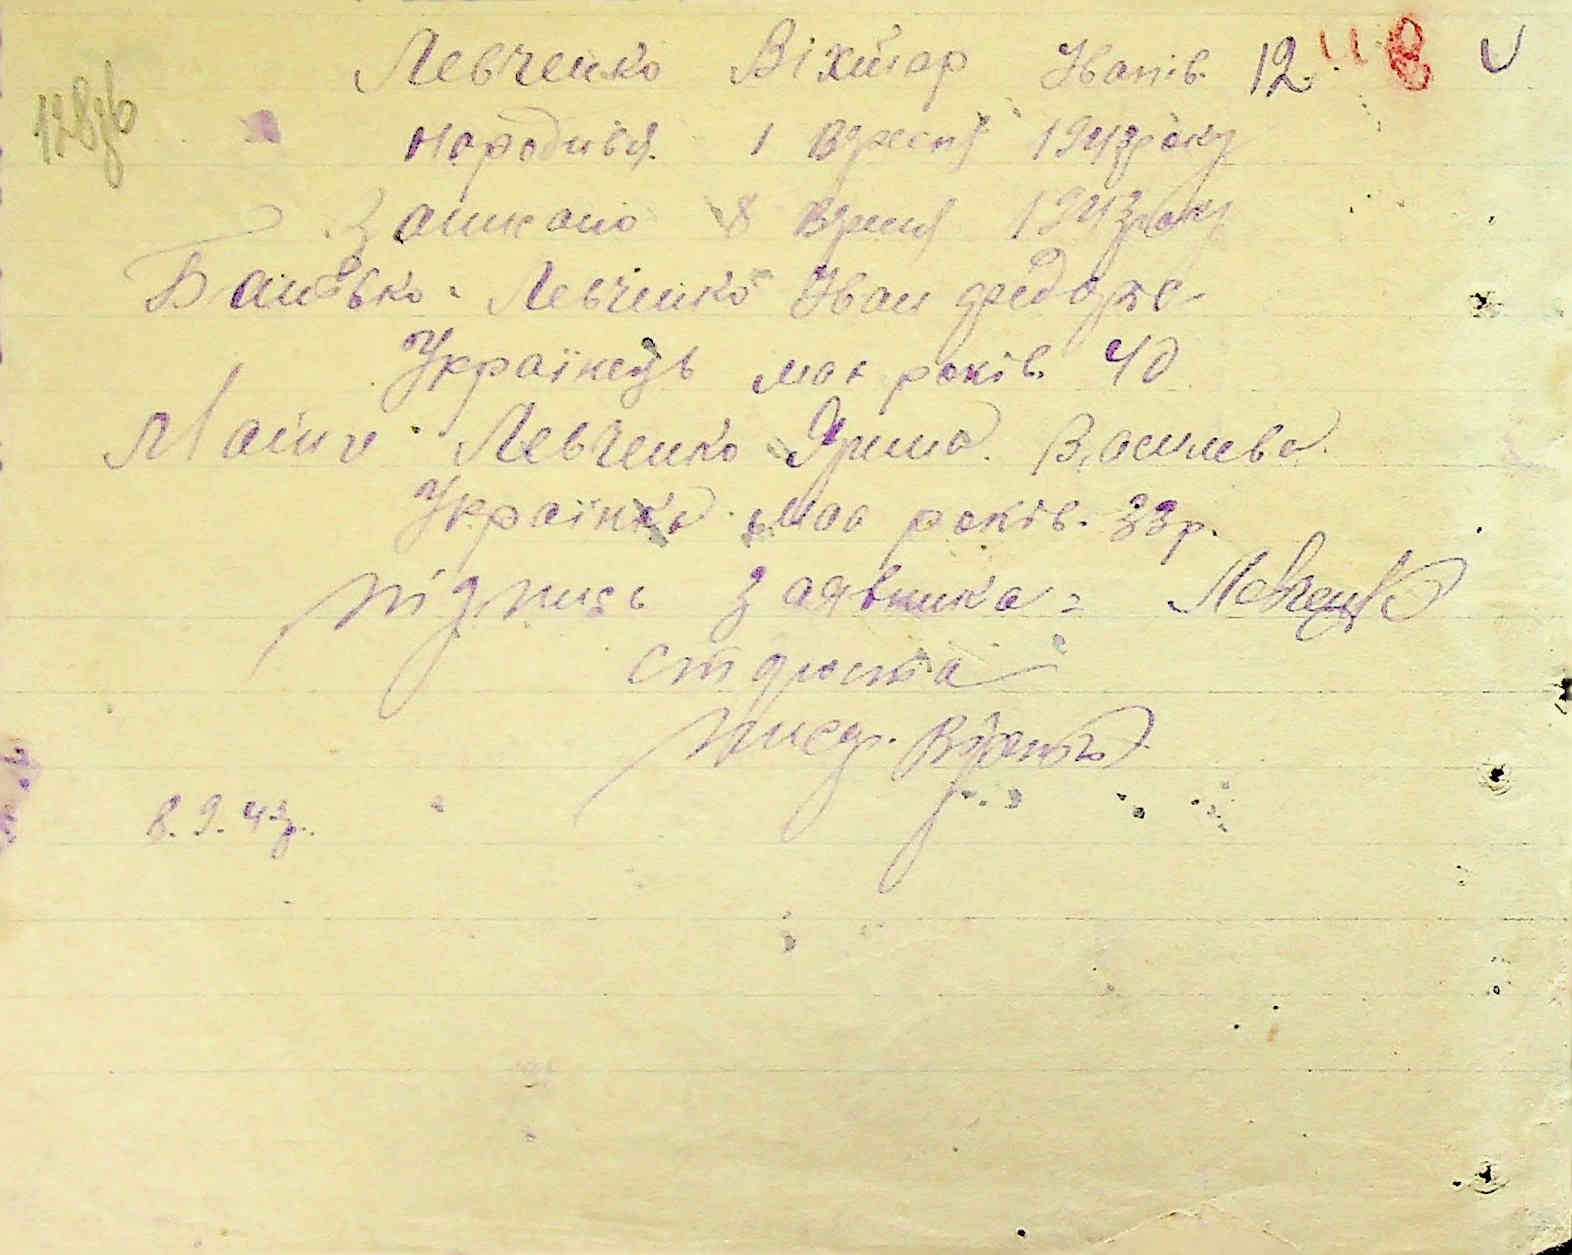 Левченко Віктор Іванів. 12
народився 1 вересня 1943 року
Записано 8 вересня 1943 року
Батько - Левченко Іван
Українець має років 40
Мати - Левченко Ярина Василева
Українка має років. 33 р.
підпись заявника = Левченко
староста
писар.
8. 9. 43 р.